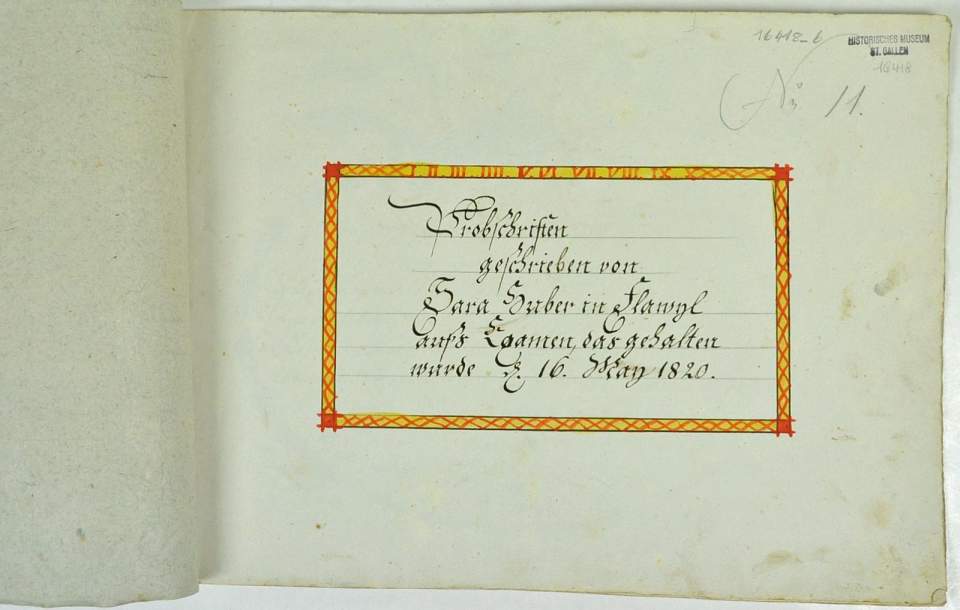 16418_b
HISTORISCHES MUSEUM
ST. GALLEN
16418
No 11.
I II III IIII V VI VII VIII IX X
Probschriften
geschrieben von
Sara Huber in Flawyl
aufs Examen, das gehalten
wurde d. 16. May 1820.